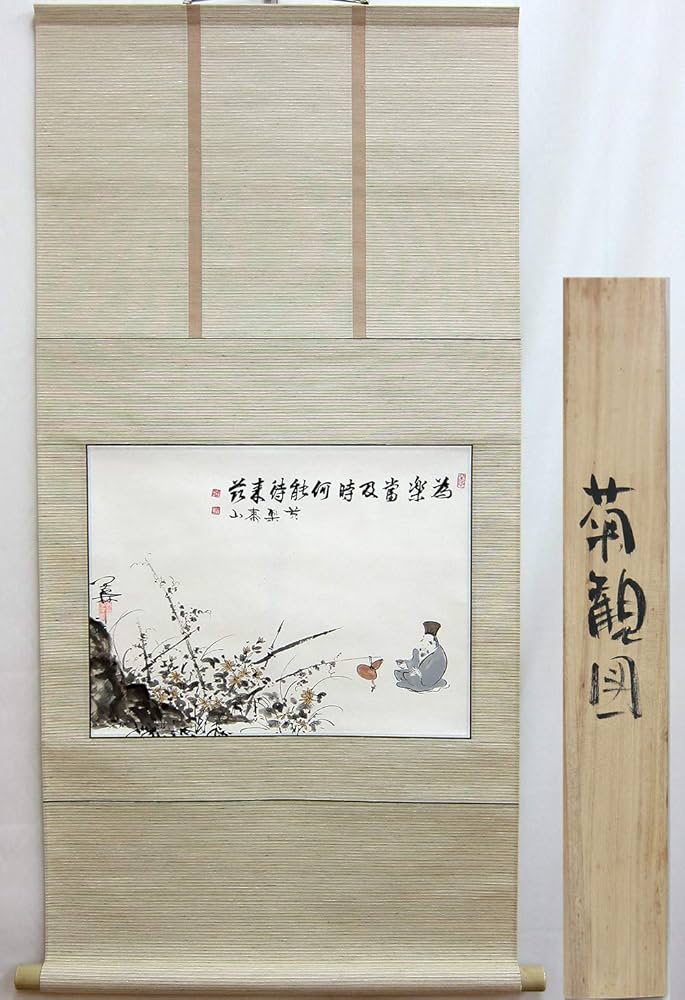 為楽當及時何能待来茲
黄檗泰山
菊観図